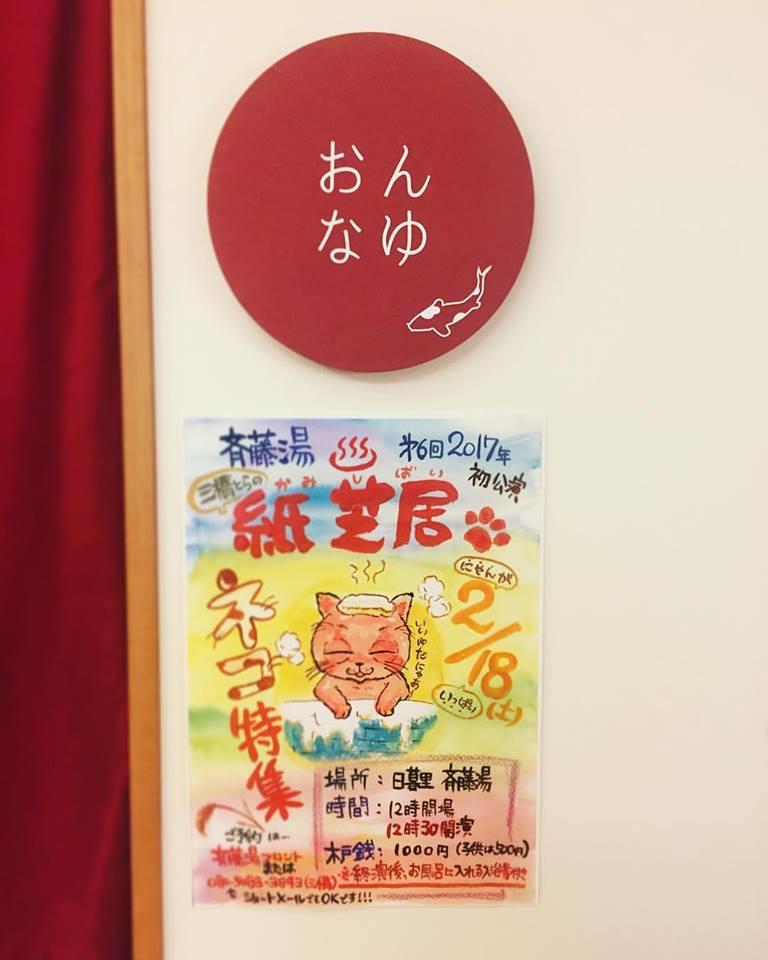 おんなゆ
斉藤湯
第6回2017年
初公演
三橋とらの
かみしばい
紙芝居
ネコ特集
にゃんが
2/18(土)
いっぱい
いいゆだにゃぁ
場所:日暮里 斉藤湯
時間:12時開場
12時30開演
木戸銭:1000円(子供は500円)
終演後、お風呂に入れる入浴書付き
ご予約は…
斉藤湯フロント
または
ショートメールでもOKです!!!